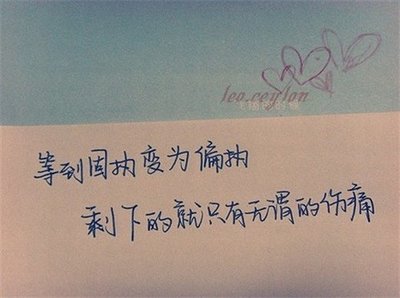 leo ceylon
等到固执变为偏执
剩下的就只有无谓的伤痛